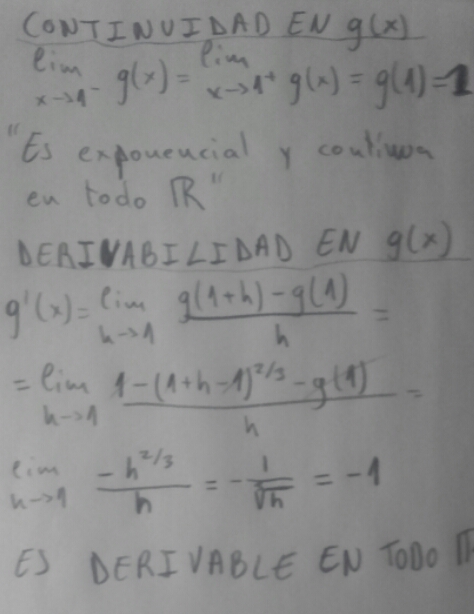 CONTINUIDAD EN g(x)
lim x→1⁻ g(x) = lim x→1⁺ g(x) = g(1) = 1
"Es exponencial y continua
en todo ℝ"
DERIVABILIDAD EN g(x)
g'(x) = lim h→1 (g(1+h) - g(1))/h =
= lim h→1 (1-(1+h-1)^{2/3} - g(1))/h =
lim h→1 (-h^{2/3})/h = -1/∛h = -1
ES DERIVABLE EN TODO ℝ